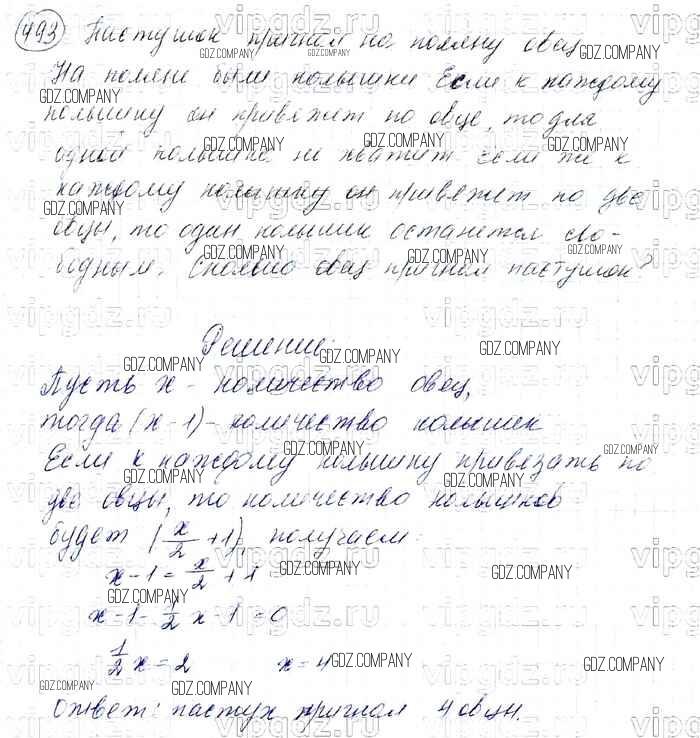 493 Пастушок пригнал на поляну овец
На поляне были колышки Если к каждому
колышку он привяжет по овце, то для
одной колышка не хватит если же к
каждому колышку он привяжет по две
овцы, то один колышек останется сво-
бодным. Сколько овец пригнал пастушок?
Решение:
Пусть x - количество овец,
тогда (x-1) - количество колышек
Если к каждому колышку привязать по
две овцы, то количество колышков
будет (x/2 + 1), получаем:
x - 1 = x/2 + 1
x - 1 - 1/2 x - 1 = 0
1/2 x = 2 x = 4
Ответ: пастух пригнал 4 овцы.
GDZ.COMPANY
vipgdz.ru